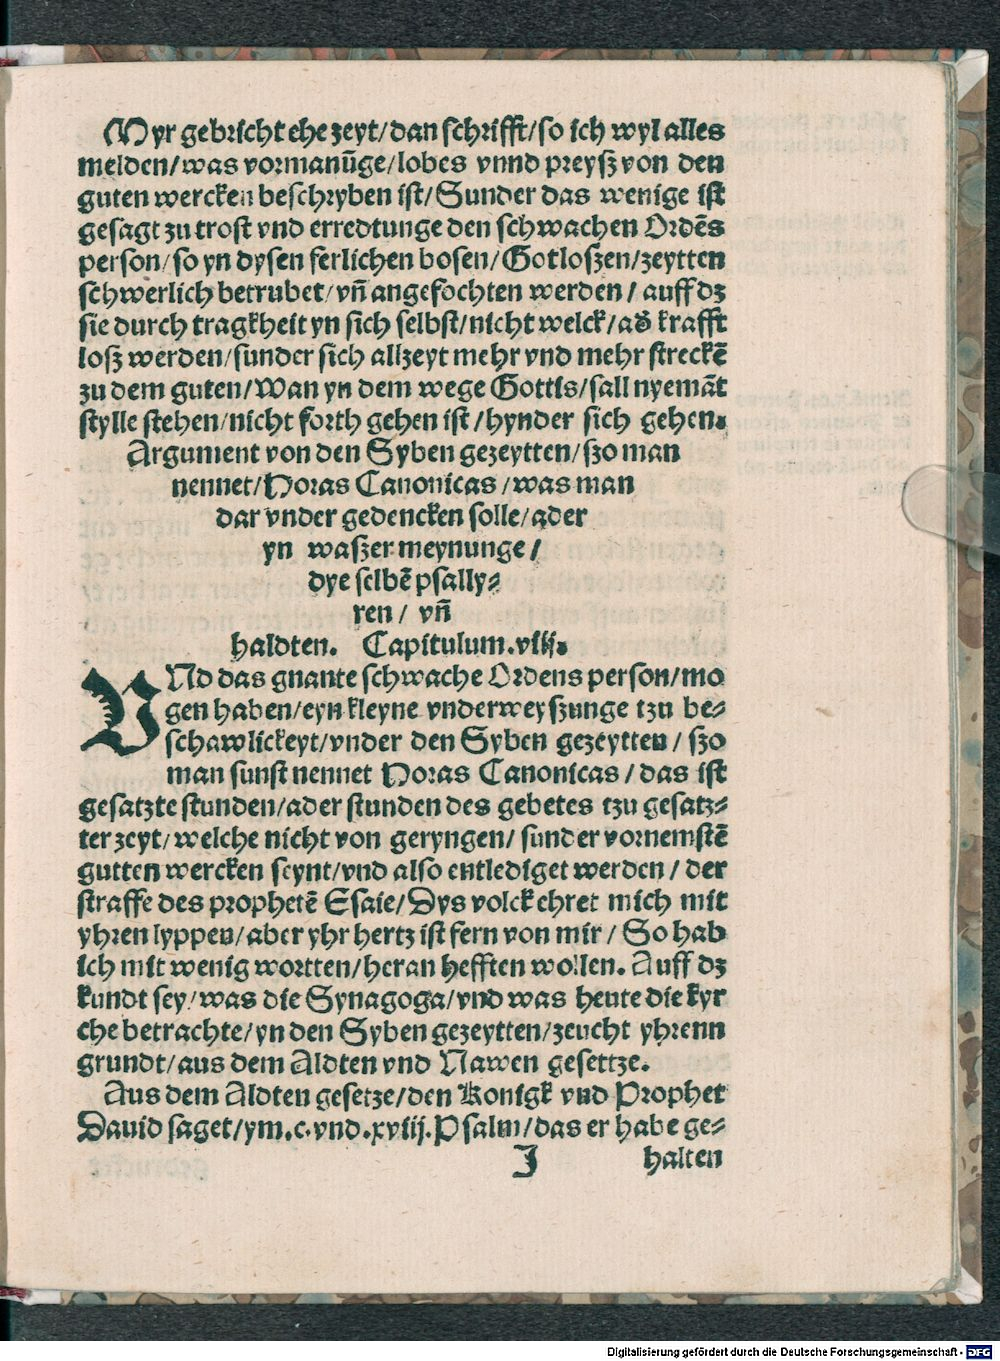 Myr gebricht ehe zeyt/dan schrifft/so ich wyl alles
melden/was vormanūge/lobes vnnd preysz von den
guten wercken beschryben ist/Sunder das wenige ist
gesagt zu trost vnd erredtunge den schwachen Ordēs
person/so yn dysen ferlichen bosen/Gotloszen/zeytten
schwerlich betrubet/vn̄ angefochten werden/auff dz
sie durch tragkheit yn sich selbst/nicht welck/ad̓ krafft
losz werden/sunder sich allzeyt mehr vnd mehr streckē
zu dem guten/Wan yn dem wege Gottis/sall nyemāt
stylle stehen/nicht forth gehen ist/hynder sich gehen.
Argument von den Syben gezeytten/szo man
nennet/Horas Canonicas/was man
dar vnder gedencken solle/ader
yn waszer meynunge/
dye selbē psally⸗
ren/ vn̄
haldten. Capitulum.viij.
VNd das gnante schwache Ordens person/mo
gen haben/eyn kleyne vnderweyszunge tzu be⸗
schawlickeyt/vnder den Syben gezeytten/szo
man sunst nennet Horas Canonicas/das ist
gesatzte stunden/ader stunden des gebetes tzu gesatz⸗
ter zeyt/welche nicht von geryngen/sunder vornemstē
gutten wercken seynt/vnd also entlediget werden/der
straffe des prophetē Esaie/Dys volck ehret mich mit
yhren lyppen/aber yhr hertz ist fern von mir/So hab
ich mit wenig wortten/heran hefften wollen. Auff dz
kundt sey/was die Synagoga/vnd was heute die kyr
che betrachte/yn den Syben gezeytten/zeucht yhrenn
grundt/aus dem Aldten vnd Nawen gesettze.
Aus dem Aldten gesetze/den Konigk vnd Prophet
Dauid saget/ym.c.vnd.xviij.Psalm/das er habe ge⸗
J halten
Digitalisierung gefördert durch die Deutsche Forschungsgemeinschaft - DFG